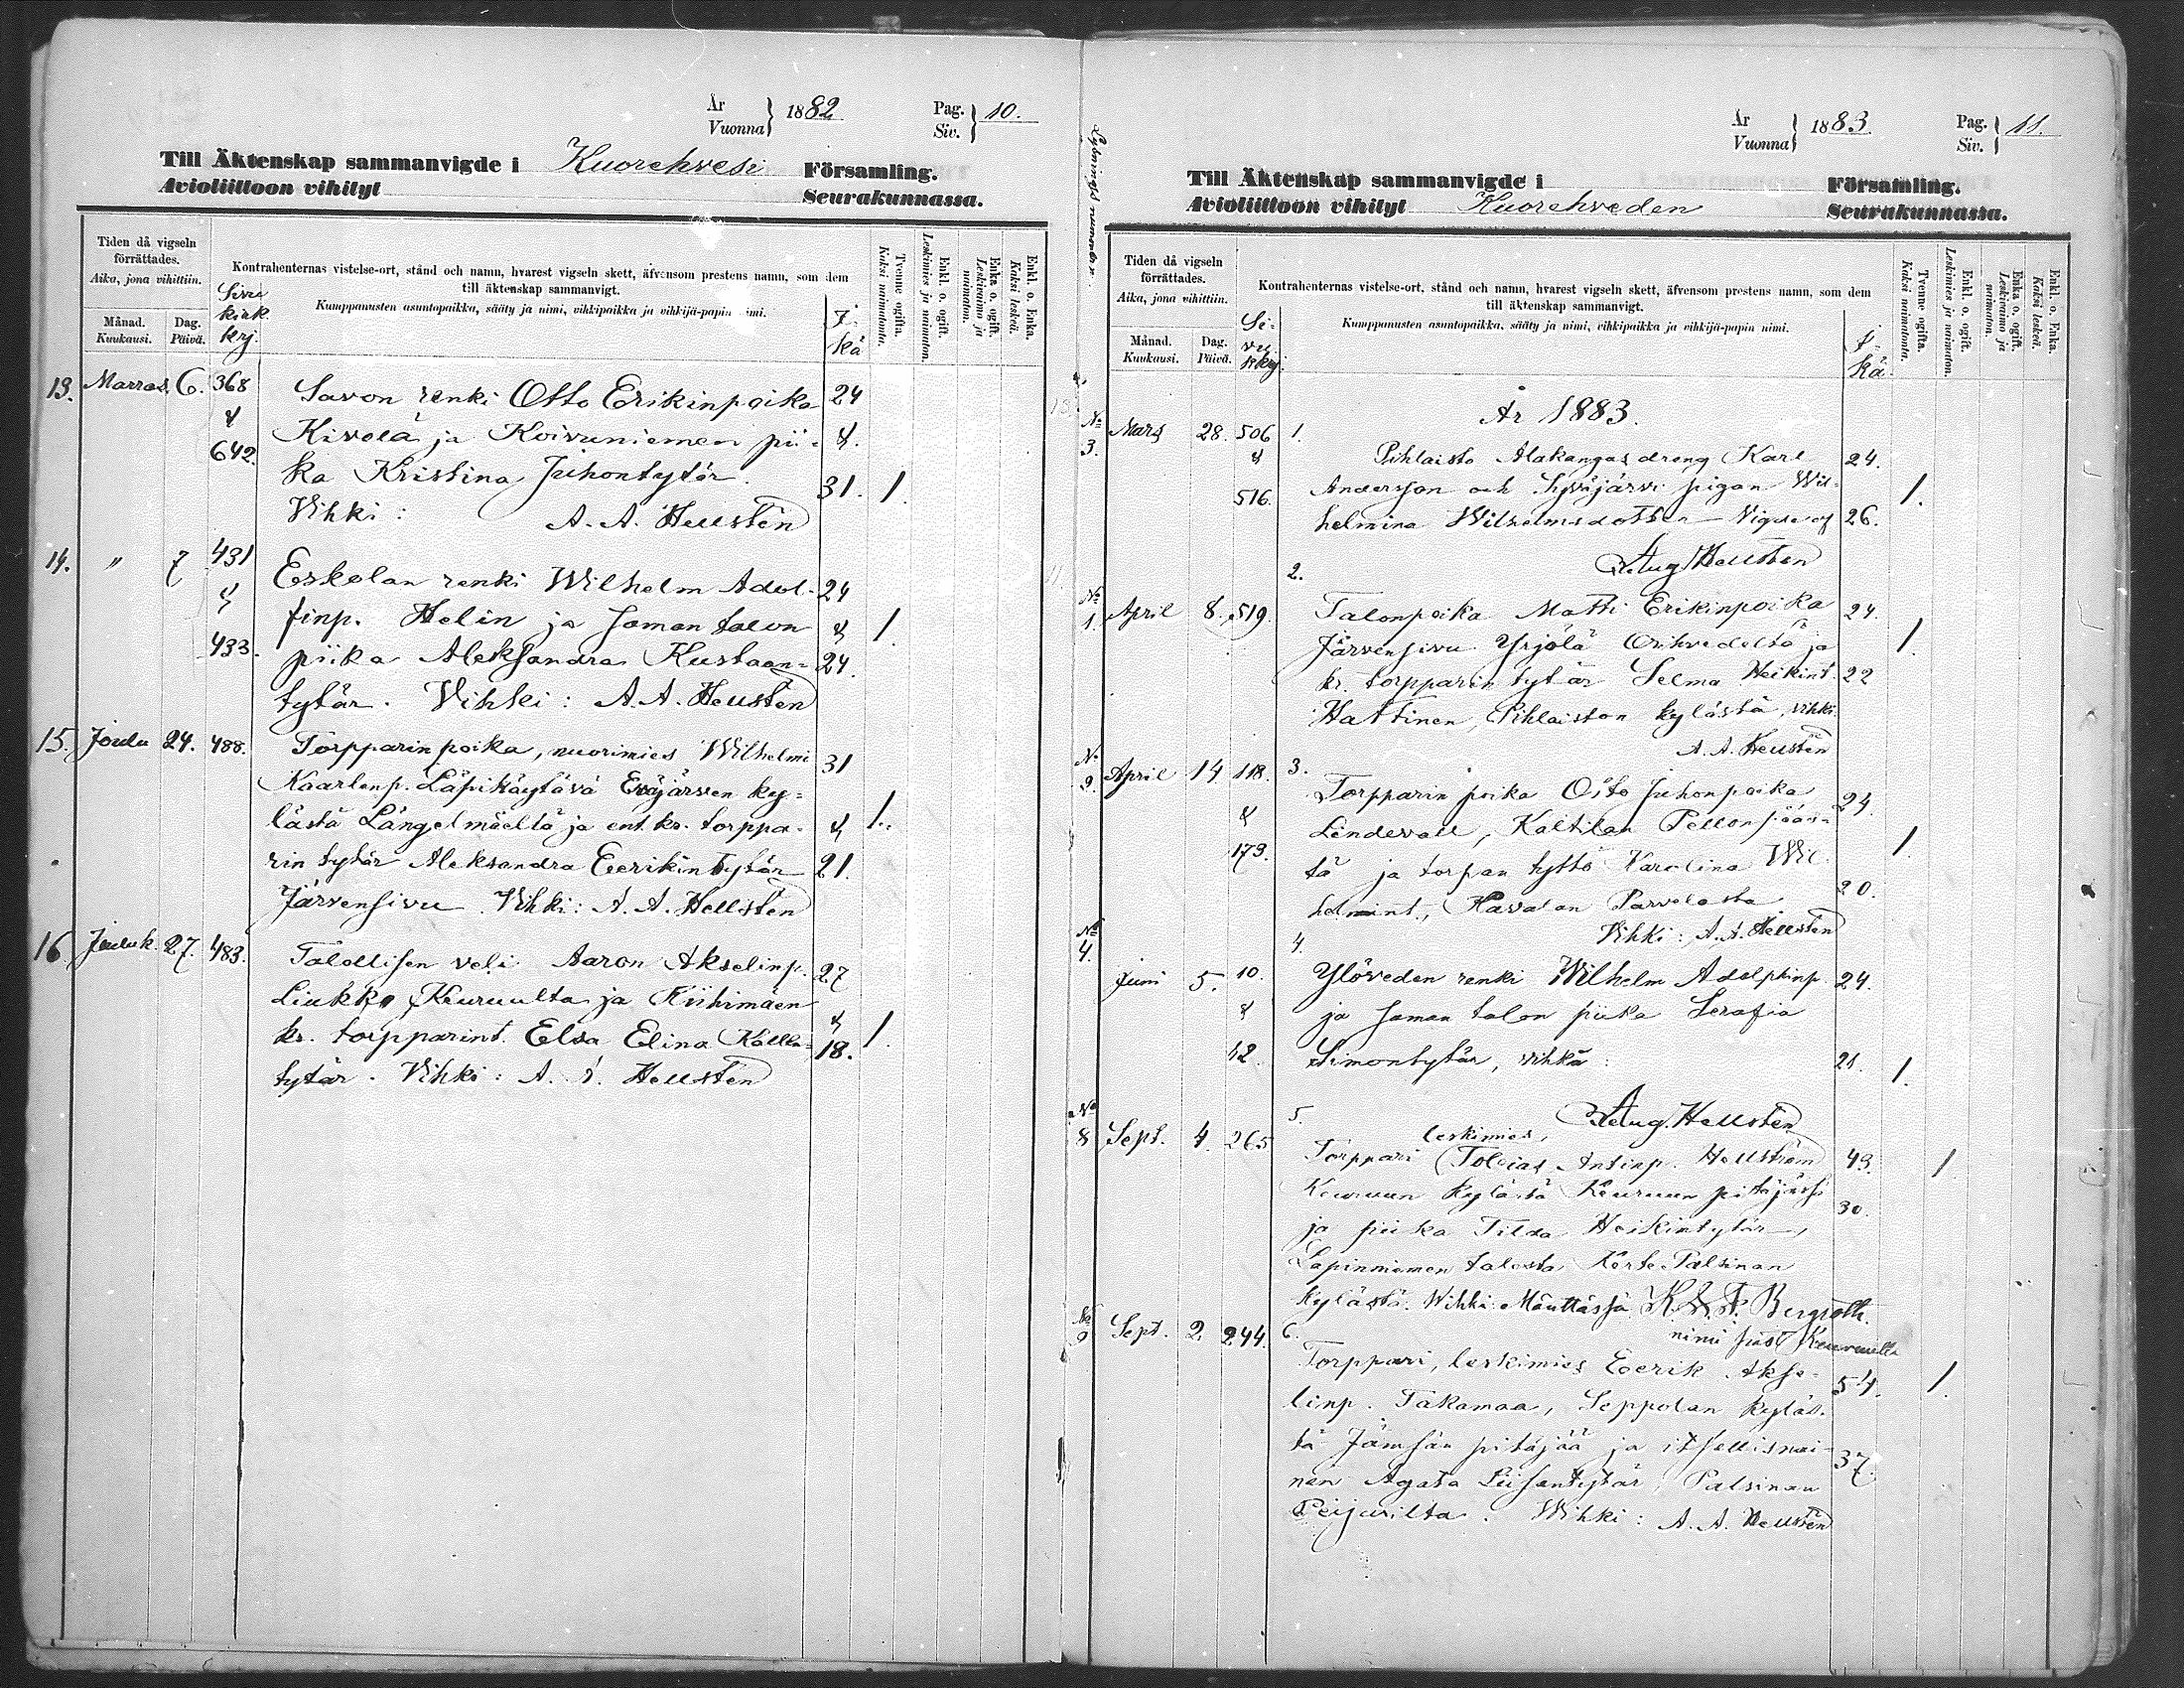 År
Vuonna } 1882. Pag.
Siv. } 10.
Till Äktenskap sammanvigde i Kuorehvesi Församling.
Avioliittoon vihityt Seurakunnassa.
Tiden då vigseln
förrättades.
Aika, jona vihittiin.
Månad.
Kuukausi.
Dag.
Päivä.
Sivu
kirk
krj.
Kontrahenternas vistelse-ort, stånd och namn, hvarest vigseln skett, äfvensom prestens namn, som dem
till äktenskap sammanvigt.
Kumppanusten asuntopaikka, sääty ja nimi, vihkipaikka ja vihkijä-papin nimi.
I-
kä
Tvenne ogifta.
Kaksi naimatonta.
Enkl. o. ogift.
Leskimies ja naimaton.
Enka o. ogift.
Leskivaimo ja
naimaton.
Enkl. o. Enka.
Kaksi leskeä.
13. Marras. 6. 368 Savon renki Otto Erikinpoika 24
& Kivelä ja Koivuniemen pii- &.
642. ka Kristina Juhontytär. 31. 1.
Vihki: A. A. Hellstén
14. " 7 431 Eskolan renki Wilhelm Adol- 24
& finp. Helin ja saman talon & 1.
433. piika Aleksandra Kustaan- 24.
tytär. Vihki: A. A. Hellstén
15. Joulu 24. 488. Torpparin poika, nuorimies Wilhelmi 31
Kaarlenp. Läpikäytävä Eräjärven ky-
lästä Längelmäeltä ja ent. kr. torppa- & 1.
rin tytär Aleksandra Eerikin tytär 21.
Järvensivu. Vihki: A. A. Hellstén
16. Jouluk. 27. 483. Talollisen veli Aaron Akselinp. 27
Liukko, Keuruulta ja Riihimäen &
kr. torpparint. Elsa Elina Kalle- 18. 1.
tytär. Vihki: A. A. Hellstén
År
Vuonna } 1883. Pag.
Siv. } 11.
Till Äktenskap sammanvigde i Församling.
Avioliittoon vihityt Kuorehveden Seurakunnassa.
Lysnings numror.
Tiden då vigseln
förrättades.
Aika, jona vihittiin.
Månad.
Kuukausi.
Dag.
Päivä.
Si-
vu
kkrj.
Kontrahenternas vistelse-ort, stånd och namn, hvarest vigseln skett, äfvensom prestens namn, som dem
till äktenskap sammanvigt.
Kumppanusten asuntopaikka, sääty ja nimi, vihkipaikka ja vihkijä-papin nimi.
I-
kä
Tvenne ogifta.
Kaksi naimatonta.
Enkl. o. ogift.
Leskimies ja naimaton.
Enka o. ogift.
Leskivaimo ja
naimaton.
Enkl. o. Enka.
Kaksi leskeä.
År 1883.
No 3. Mars 28. 506 1.
& Pihlaisto Alakangas dreng Karl 24.
516. Andersson och Syväjärvi pigan Wil- 1.
helmina Wilhelmsdotter Vigde af 26.
Aug. Hellstén
2.
No 1. April 8. 519. Talonpoika Matti Erikinpoika 24.
Järvensivu Yrjölä Orihvedeltä ja 1.
kr. torpparin tytär Selma Heikint. 22
Hattinen, Pihlaiston kylästä, vihki.
A. A. Hellstén
No 2. April 14 118. 3.
Torpparin poika Otto Juhonpoika 24.
& Lindevall, Kaltilan Pellonpääs-
173. tä ja torpan tyttö Karolina Wil- 1.
helmint., Havalan Parvelasta 20.
Vihki: A. A. Hellstén
No 4. 4.
Juni 5. 10. Ylöveden renki Wilhelm Adolphinp. 24.
& ja saman talon piika Serafia
12. Simontytär, vihkä: 21. 1.
Aug. Hellstén
No 8 Sept. 4. 265 5. leskimies,
Torppari (Tobias Antinp. Hellström 43. 1
Keuruun kylästä Keuruun pitäjässä
ja piika Tilda Heikintytär, 30.
Lapinniemen talosta Kerte-Palsinan
kylästä. Vihki Mänttässä Bergroth.
nimi Keuruulla
No 9 Sept. 2. 244. 6.
Torppari, leskimies Eerik Akse- 54. 1.
linp. Takamaa, Seppolan kyläs-
tä Jämsän pitäjää ja itsellisnai- 37.
nen Agata Liisantytär, Palsinan
Peijarilta. Vihki: A. A. Hellstén